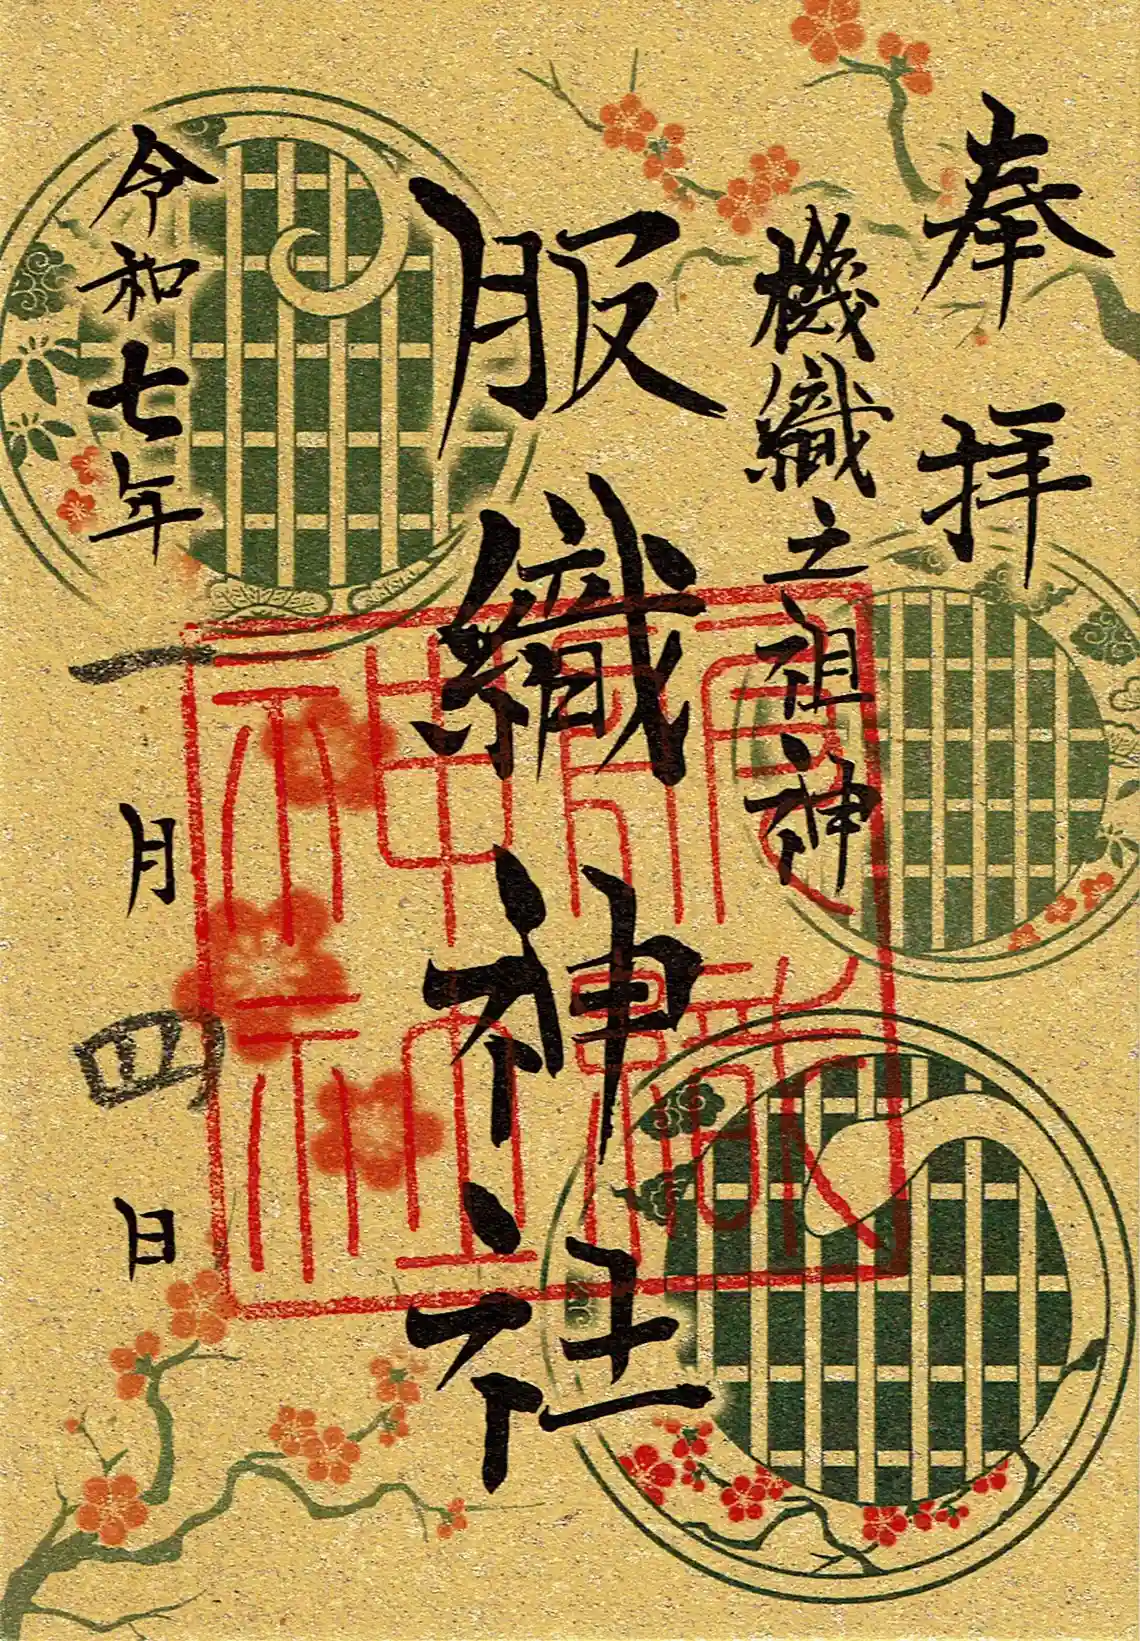 奉拝
機織之祖神
服織神社
令和七年一月四日